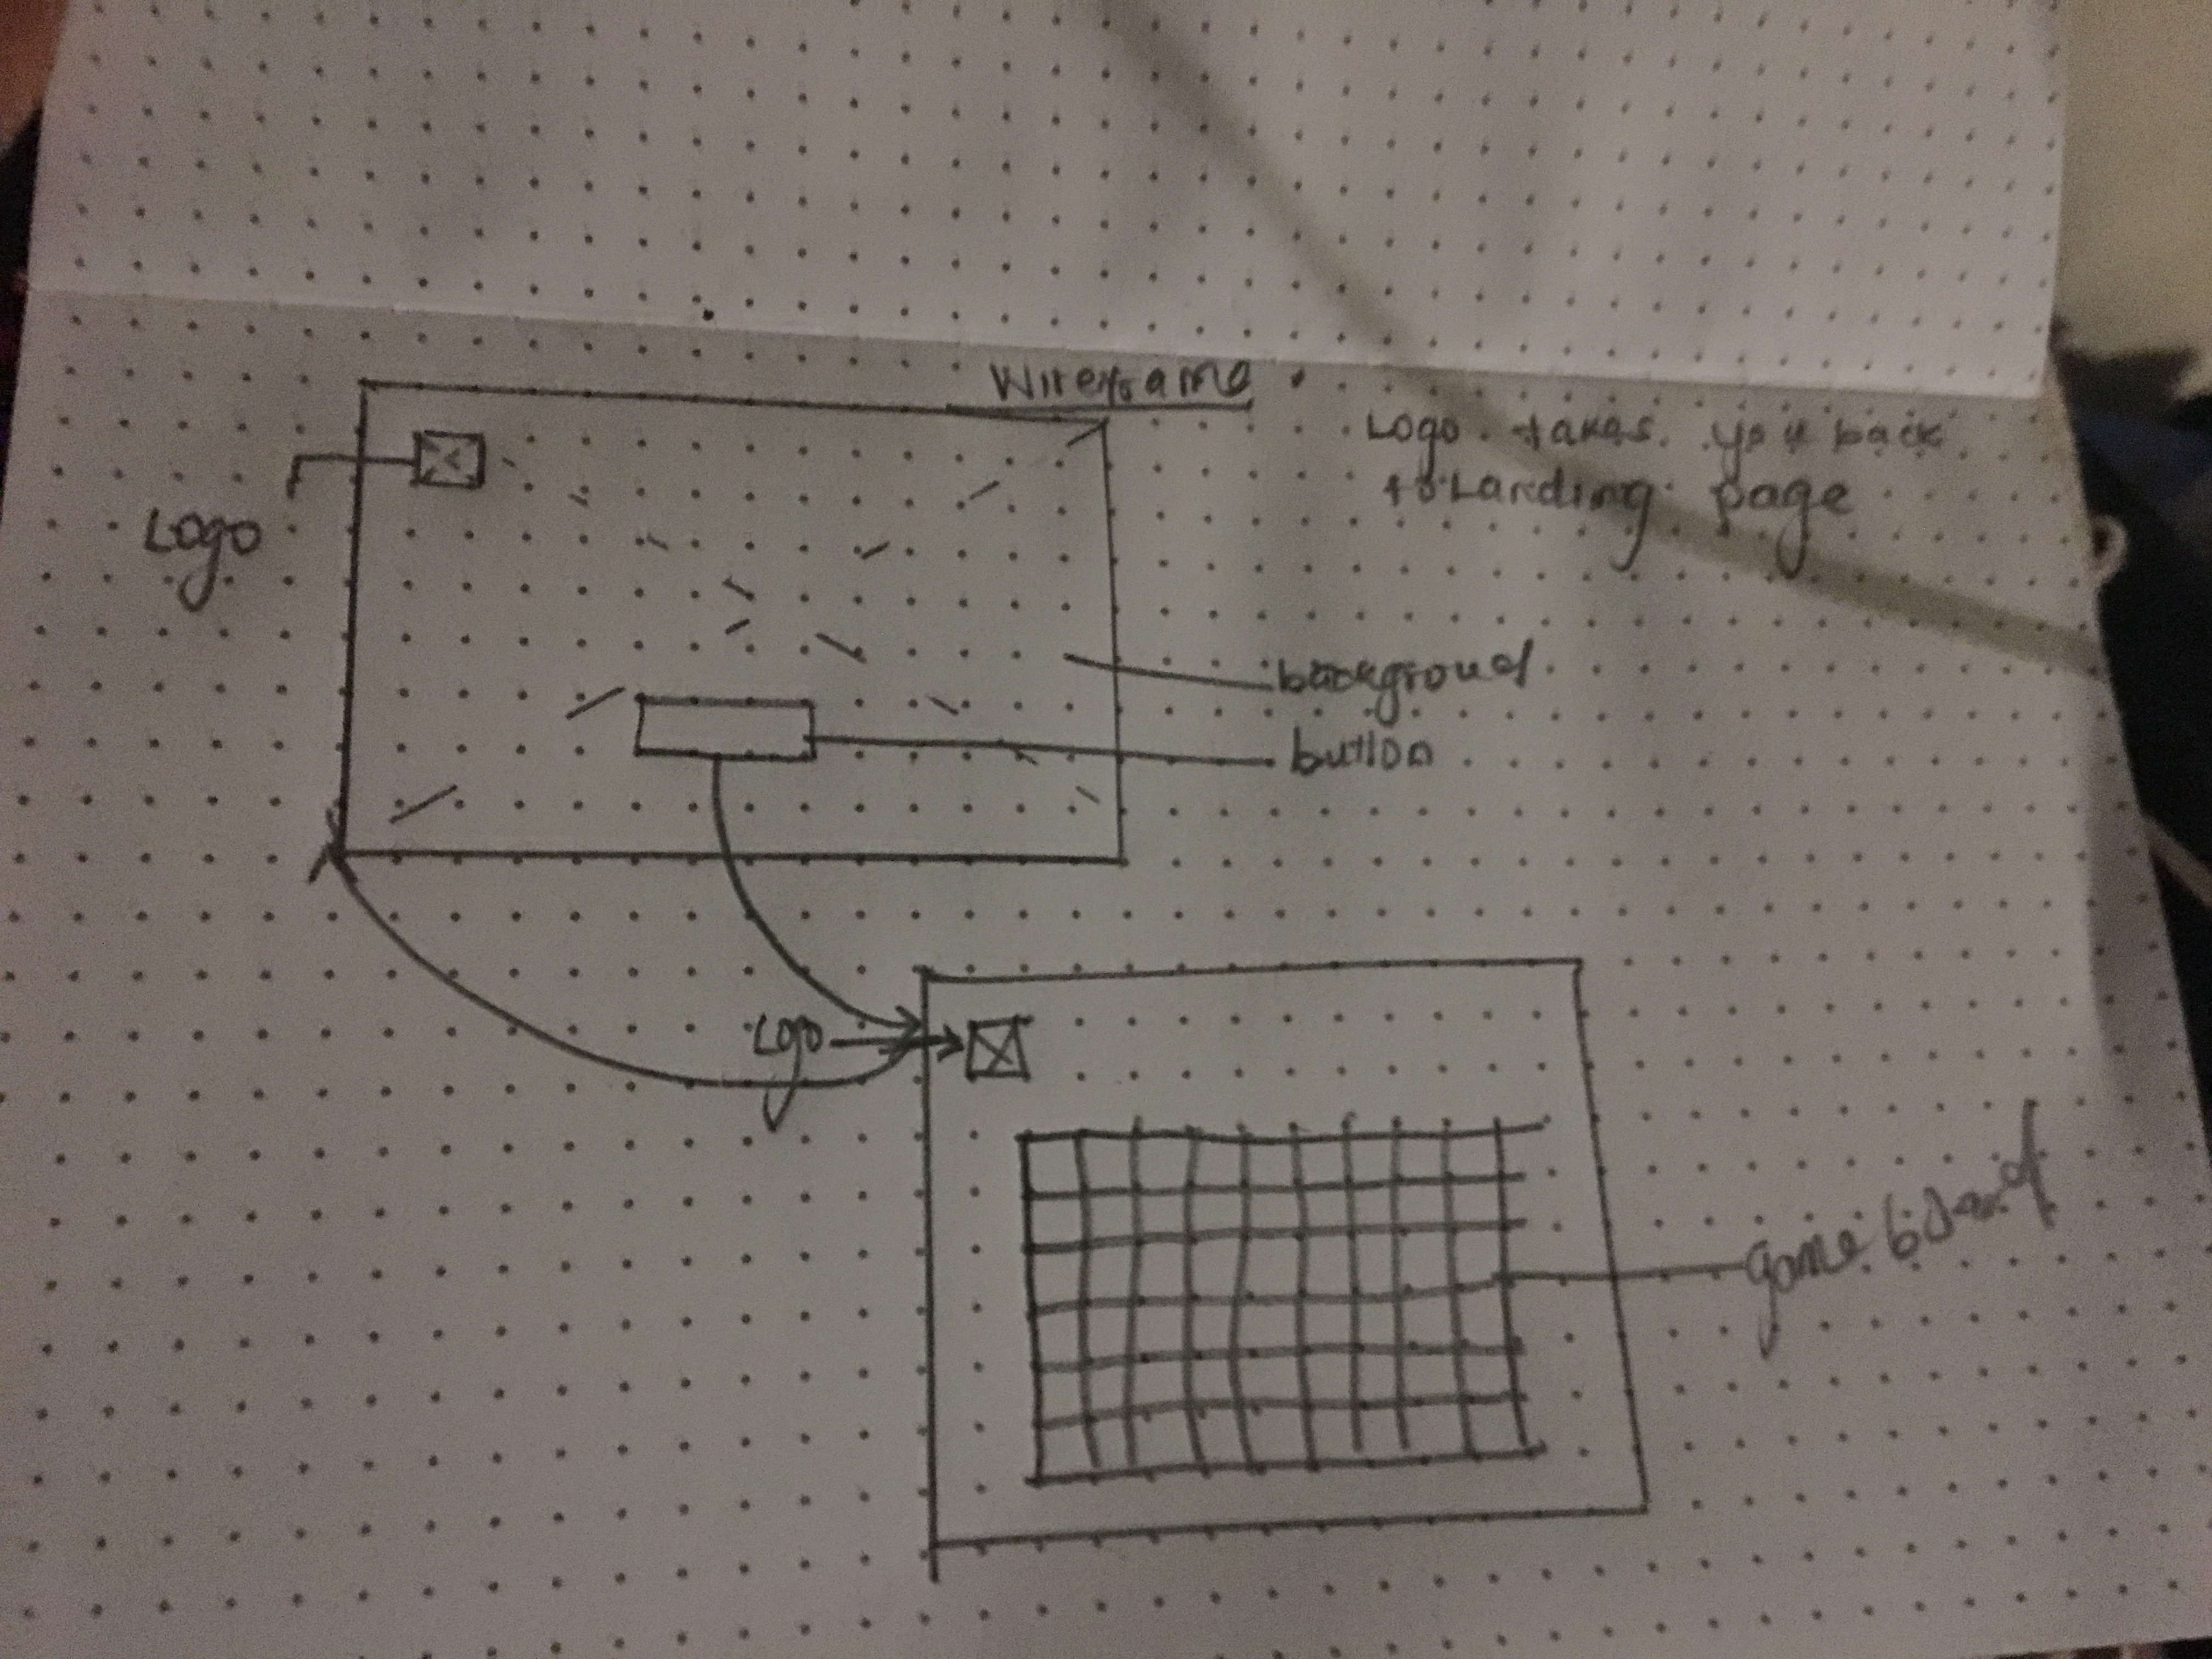 Wireframe
Logo takes you back
to Landing page
Logo
background
button
Logo
game board